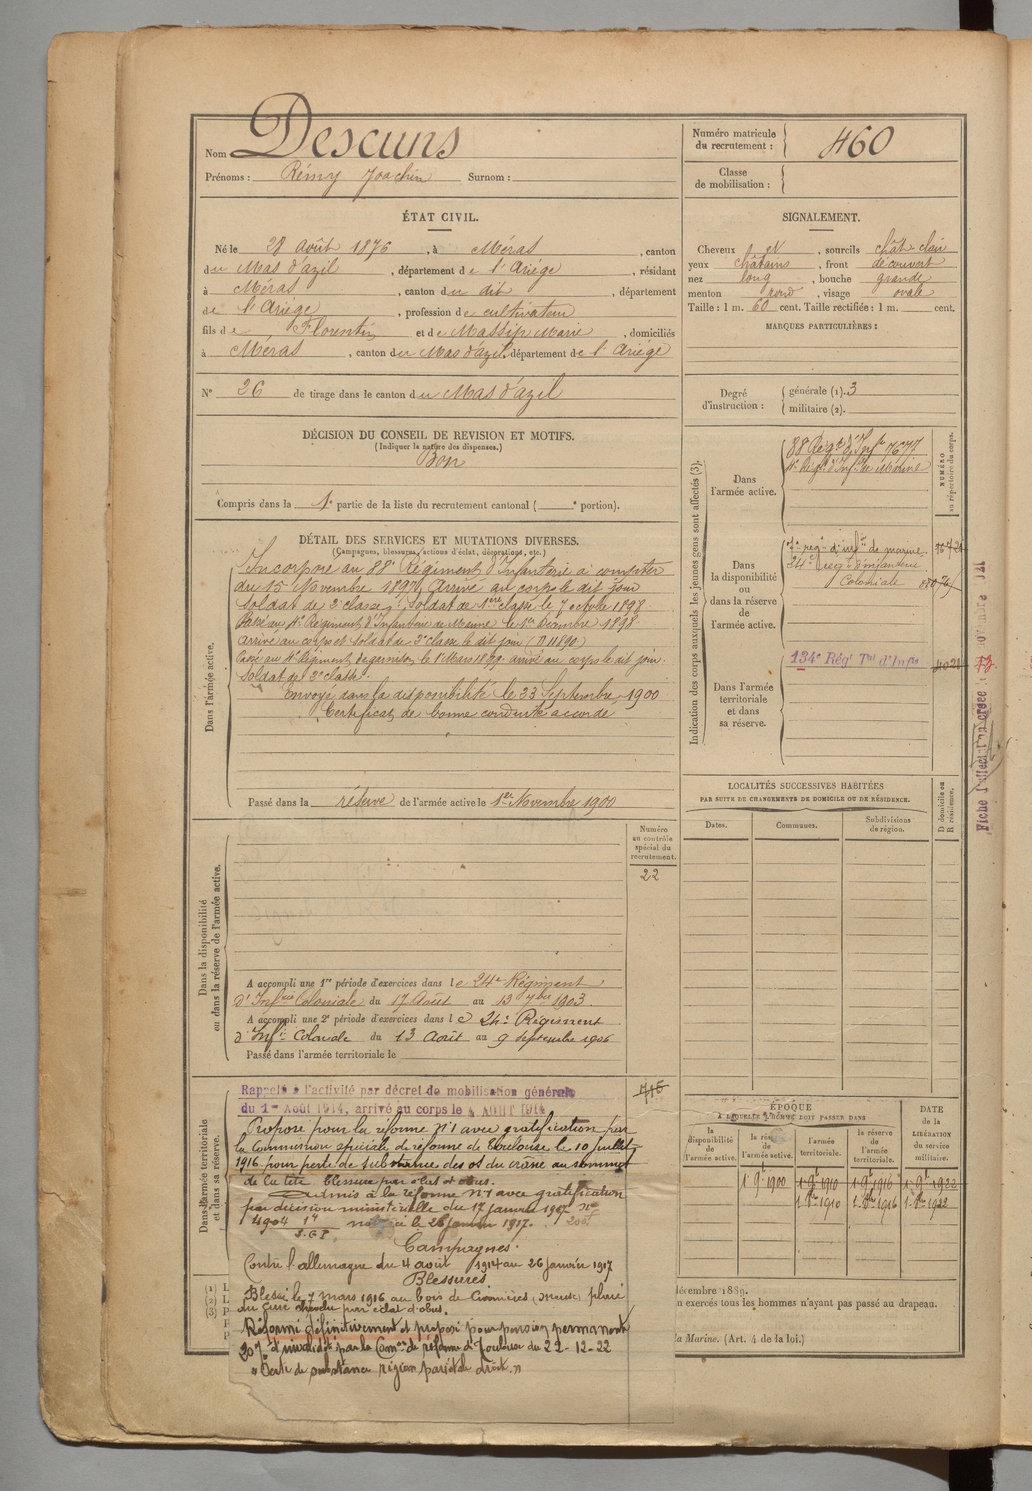 Nom Descuns
Prénoms : Rémy Joachim Surnom :
Numéro matricule
du recrutement : 460
Classe
de mobilisation :
ÉTAT CIVIL.
Né le 28 Août 1876, à Méras, canton
du Mas d'azil, département de l'Ariége, résidant
à Méras, canton du dit, département
de l'Ariége, profession de cultivateur
fils de Florentin et de Massip Marie, domiciliés
à Méras, canton du Mas d'azil, département de l'Ariége
N° 26 de tirage dans le canton du Mas d'azil
SIGNALEMENT.
Cheveux et, sourcils chât clair
yeux châtains, front découvert
nez long, bouche grande
menton rond, visage ovale
Taille : 1 m. 60 cent. Taille rectifiée : 1 m. cent.
MARQUES PARTICULIÈRES :
Degré
d'instruction :
générale (1). 3
militaire (2).
DÉCISION DU CONSEIL DE REVISION ET MOTIFS.
(Indiquer la nature des dispenses.)
Bon
Compris dans la 1e partie de la liste du recrutement cantonal ( e portion).
DÉTAIL DES SERVICES ET MUTATIONS DIVERSES.
(Campagnes, blessures, actions d'éclat, décorations, etc.)
Dans l'armée active.
Incorporé au 88e Régiment d'Infanterie à compter
du 15 Novembre 1897. Arrivé au corps le dit jour
Soldat de 2e classe. Soldat de 1ère classe le 7 octobre 1898
Passé au 4e Régiment d'Infanterie de Marine le 1er Décembre 1898
Arrivé au corps et soldat de 2e classe le dit jour (n 11890)
Passé au 4e Régiment de garnison le 1er Mars 1899 arrivé au corps le dit jour
Soldat de 2e classe.
Envoyé dans la disponibilité le 23 Septembre 1900
Certificat de bonne conduite accordé
Passé dans la réserve de l'armée active le 1er Novembre 1900
Indication des corps auxquels les jeunes gens sont affectés (3).
NUMÉRO
au répertoire du corps.
Dans
l'armée active.
88 Régt d'Infie 7677
4e Régt d'Infie de Marine
Dans
la disponibilité
ou
dans la réserve
de
l'armée active.
7e régt d'inffie de marine.
24e régt d'infanterie
Coloniale
Dans l'armée
territoriale
et dans
sa réserve.
134e Régt Tal d'Infie
LOCALITÉS SUCCESSIVES HABITÉES
PAR SUITE DE CHANGEMENTS DE DOMICILE OU DE RÉSIDENCE.
Dates. Communes. Subdivisions
de région.
D domicile ou
R résidence.
Numéro
au contrôle
spécial du
recrutement.
22
Dans la disponibilité
ou dans la réserve de l'armée active.
A accompli une 1re période d'exercices dans le 24e Régiment
d'Infrie Coloniale du 17 Août au 13 7bre 1903.
A accompli une 2e période d'exercices dans le 24e Régiment
d'Infie Coloniale du 13 Août au 9 Septembre 1906
Passé dans l'armée territoriale le
Dans l'armée territoriale
et dans sa réserve.
Rappelé à l'activité par décret de mobilisation générale
du 1er Août 1914, arrivé au corps le 4 AOUT 1914
Proposé pour la réforme n°1 avec gratification par
la Commission spéciale de réforme de Toulouse le 10 Juillet
1916 pour perte de substance des os du crâne au sommet
de la tête. blessure par éclat d'obus.
Admis à la réforme n°1 avec gratification
par décision ministérielle du 17 janvier 1917
notifié le 26 janvier 1917.
Campagnes.
Contre l'allemagne du 4 août 1914 au 26 janvier 1917
Blessures
Blessé le 7 mars 1916 au bois de Cumières (meuse) plaie
du cuir chevelu par éclat d'obus.
Réformé définitivement et proposé pour pension permanente
20% d'invalidité par la Comon de réforme de Toulouse du 22-12-22
"Perte de substance région pariétale droite"
ÉPOQUE
À LAQUELLE L'HOMME DOIT PASSER DANS
la
disponibilité
de
l'armée active.
la réserve
de
l'armée active.
l'armée
territoriale.
la réserve
de
l'armée
territoriale.
DATE
de la
LIBÉRATION
du service
militaire.
1 9e 1900 1 9e 1910 1 9e 1916 1 9e 1922
1 8bre 1910 1 8bre 1916 1 8bre 1922
décembre 1889.
n exercés tous les hommes n'ayant pas passé au drapeau.
la Marine. (Art. 4 de la loi.)